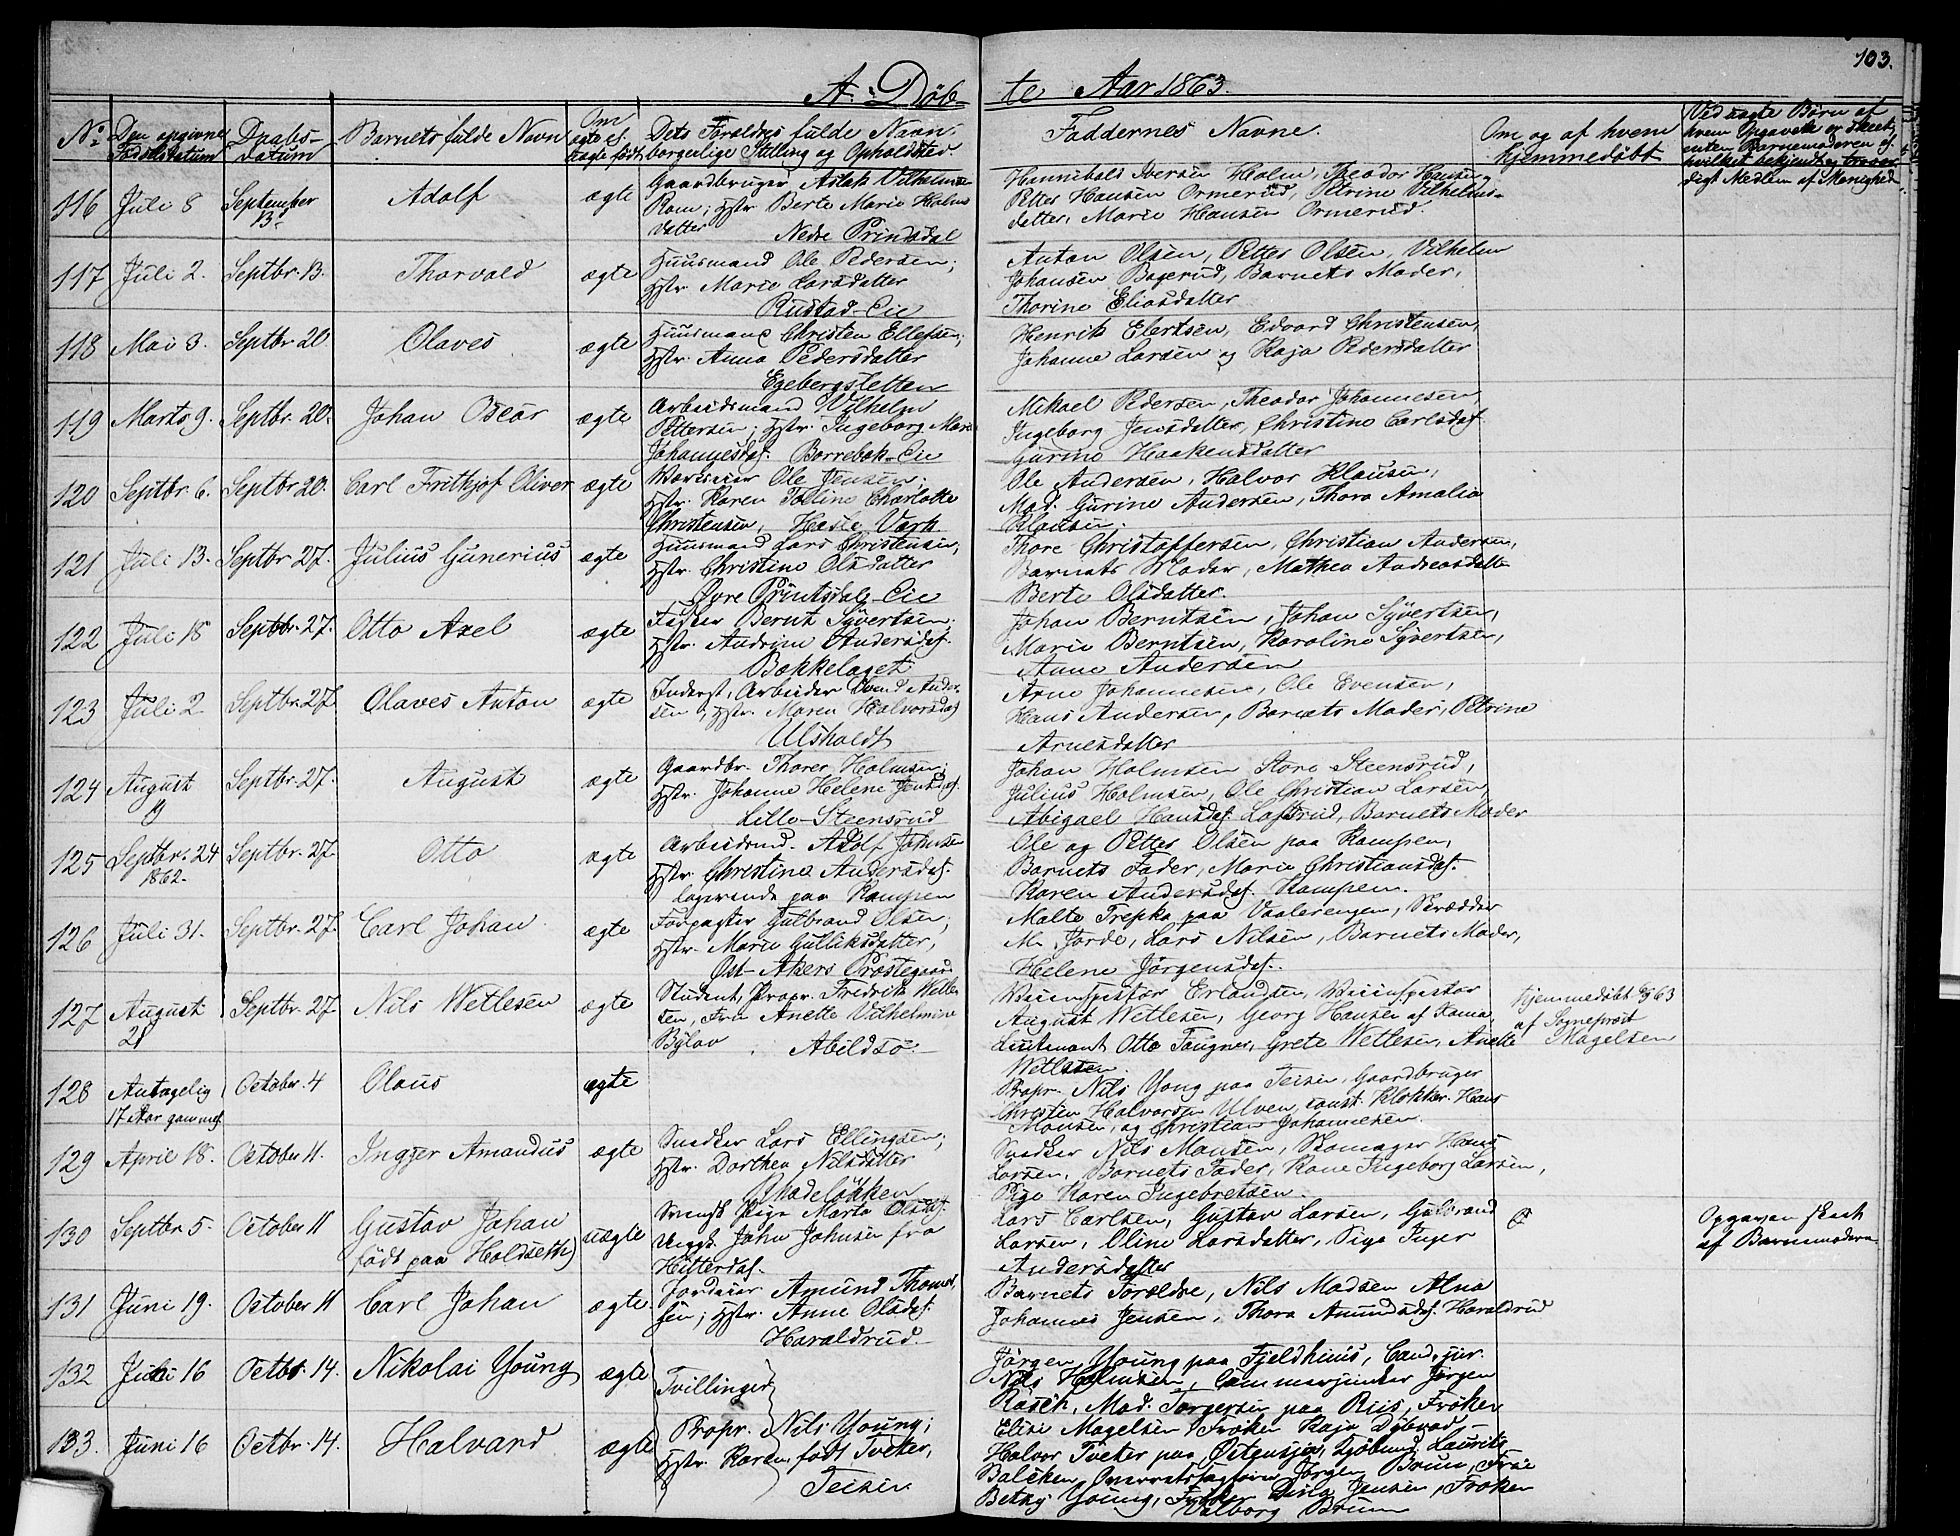 103.
A. Döb- te Aar 1863.
No. Den opgivne Fødselsdatum
Daabs-datum
Barnets fulde Navn
Om ægte el. uægte født
Dets Forældres fulde Navn, borgerlige Stilling og Opholdsted.
Faddernes Navne.
Om og af hvem hjemmedøbt
Ved uægte Børn af hvem Opgaven er skeet, enten Barnemoderen el. hvilket bekjendt og troværdigt Medlem af Menighed
116 Juli 8 September 13. Adolf ægte
Gaardbruger Aslak Vilhelmsen
Rom; Hstr. Berte Marie Holms
datter
Nedre Prindsdal
Hannibals Iversen Holm, Theodor Hansen,
Petter Hansen Ormerud, Petrine Vilhelms-
datter, Marie Hansen Ormerud.
117 Juli 2. Septbr. 13. Thorvald ægte
Huusmand Ole Pedersen;
Hstr. Marie Larsdatter
Rustad-Eie
Anton Olsen, Petter Olsen, Vilhelm
Johansen Bogerud, Barnets Moder,
Thorine Eliasdatter
118 Mai 3. Septbr 20 Olaves ægte
Huusmand Christen Ellefsen;
Hstr. Anna Pedersdatter
Egebergsletten
Henrik Elertsen, Edvard Christensen,
Johanne Larsen og Kaja Pedersdatter
119 Marts 9. Septbr. 20. Johan Oscar ægte
Arbeidsmand Vilhelm
Pettersen; Hstr. Ingeborg Marie
Johannesdat. Borrebæk-Eie
Mikael Pedersen, Theodor Johannesen,
Ingeborg Jensdatter, Christine Carlsdat.
Gurine Haakensdatter
120 Septbr. 6. Septbr 20. Carl Frithjof Oliver ægte
Ole Jensen;
Hstr. Karen Tolline Charlotte
Christensen, Hasle Værk
Ole Andersen, Halvor Klausen,
Mad. Gurine Andersen, Thora Amalia
Klausen.
121 Juli 13. Septbr 27. Julius Gunerius ægte
Huusmand Lars Christensen,
Hstr. Christine Olsdatter
Øvre Printsdal-Eie
Thore Christoffersen, Christian Andersen,
Barnets Moder, Mathea Andreasdatt
Berte Olsdatter.
122 Juli 18 Septbr. 27. Otto Axel ægte
Fisker Bernt Syvertsen;
Hstr. Andrine Andersdat.
Bækkelaget
Johan Berntsen, Johan Syvertsen,
Marie Berntsen, Karoline Syvertsen,
Anne Andersen
123 Juli 2 Septbr. 27. Olaves Anton ægte
Inderst, Arbeider Svend Ander-
sen, Hstr. Maren Halvorsdat
Ulsholdt
Arne Johannesen, Ole Evensen,
Hans Andersen, Barnets Moder, Petrine
Arnesdatter
124 August Septbr. 27. August ægte
Gaardbr. Thorer Holmsen;
Hstr. Johanne Helene Jensdat.
Lille-Steensrud
Johan Holmsen Store Steensrud,
Julius Holmsen, Ole Christian Larsen,
Abigael Hansdat. Loftsrud, Barnets Moder
125 Septbr. 24 1862. Septbr. 27. Otto ægte
Arbeidsmd. Adolf Johnsen
Hstr. Christine Andersdat.
logerende paa Kampen
Ole og Petter Olsen paa Kampen,
Barnets Fader, Marie Christiansdat.
Karen Andersdat. Kampen.
126 Juli 31. Septbr. 27. Carl Johan ægte
Forpagter Gulbrand Olsen;
Hstr. Marie Gulliksdatter,
Øst-Akers Præstegaard
Malte Trepka paa Vaalerengen, Skrædder
M. Jorde, Lars Nilsen, Barnets Moder,
Helene Jörgensdat.
127 August 21 Septbr. 27. Nils Wetlesen ægte
Student, Propr. Fredrik Wetle-
sen, Fru Anette Vilhelmine
Bülow
Abildsø.
Veiinspektør Erlandsen, Veiinspektør
August Wetlesen, Georg Hansen af Fama
Lieutenant Otto Taugner, Grete Wetlesen, Anette
Wetlesen.
hjemmedöbt 63
af Sogneprest
Magelsen
128 Antagelig 17 Aar gammel. October 4 Olaus ægte
Propr. Nils Yong paa Teisen, Gaardbruger
Christen Halvorsen Ulven, const. Klokker Hans
Monsen, og Christian Johannesen.
129 April 18. October 11. Ingjer Amandus ægte
Snedker Lars Ellingsen;
Hstr. Dorthea Nilsdatter
Ladeløkken
Snedker Nils Monsen, Skomager Hans
Larsen, Barnets Fader, Kone Ingeborg Larsen,
Pige Karen Ingebretsen.
130 Septbr 5. October 11 Gustav Johan
(född paa Holdseth) uægte
Svensk Pige Marta Olsdat.
Ungk. John Johnsen fra
Hitterdal.
Lars Carlsen, Gustav Larsen, Gulbrand
Larsen, Oline Larsdatter, Pige Inger
Andersdatter
Opgaven skeet
af Barnemoderen
131 Juni 19. October 11 Carl Johan ægte.
Jordeier Amund Thomes-
sen; Hstr. Anne Olsdat.
Haraldrud.
Barnets Forældre, Nils Madsen Alna
Johannes Jensen, Thora Amundsdat. Haraldrud
132 Juni 16 Octbr. 14. Nikolai Young ægte
Tvillinger
Jörgen Young paa Fjeldhuus, Cand. jur.
Nils Holmsen, Cammerjunker Jörgen
Rasch, Mad. Torgersen paa Riis, Frøken
Elise Magelsen Frøken Kaja Dybvad,
133. Juni 16 Octbr. 14. Halvard ægte
Propr. Nils Young;
Hstr. Karen, født Tveter,
Teisen
Halvor Tveter paa Østensjøe, Laurits
Balchen, Overretssagfører Jörgen Bruun, Frue
Betsy Young, Frøken Dina Jensen, Frøken
Valborg Bruun